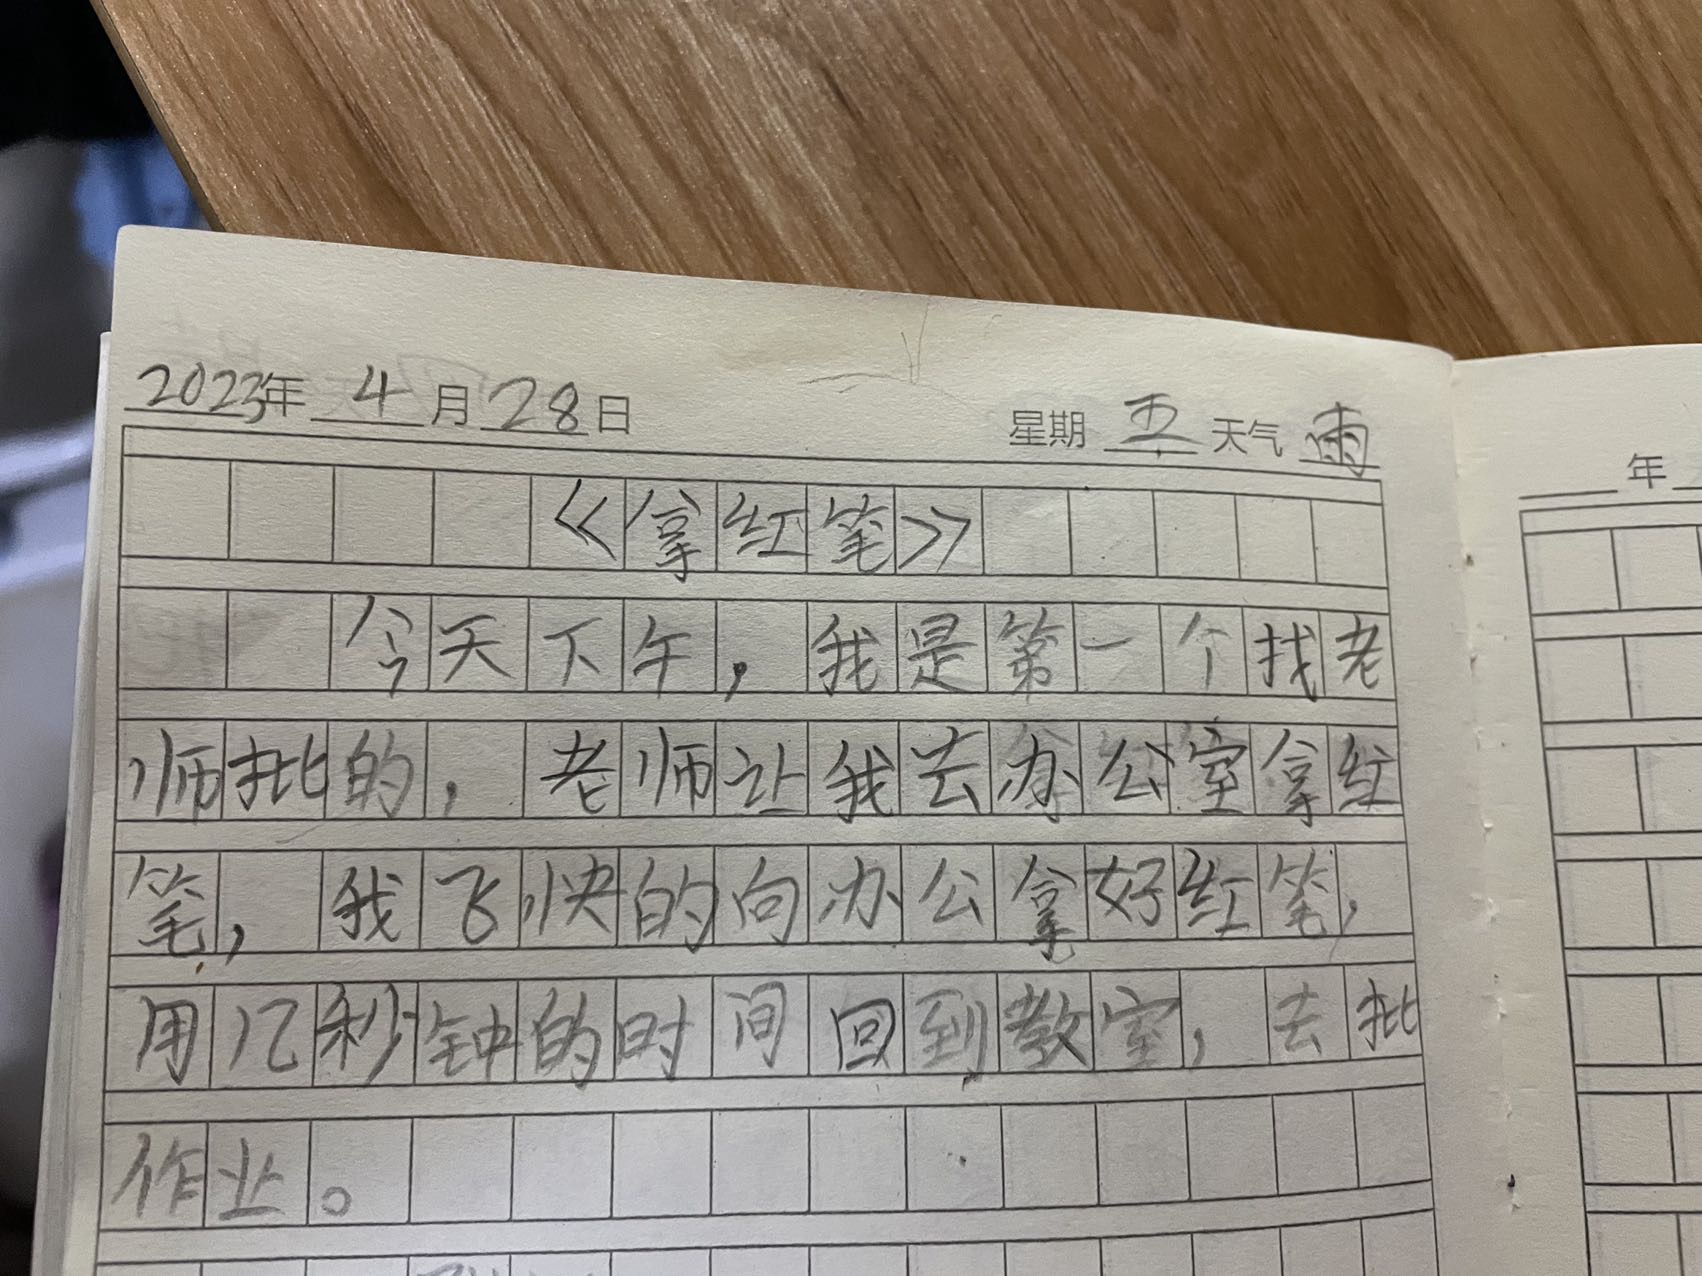 2023年 4月28日 星期 五 天气 雨
《拿红笔》
今天下午，我是第一个找老
师批的，老师让我去办公室拿红
笔，我飞快的向办公拿好红笔，
用几秒钟的时间回到教室，去批
作业。
年